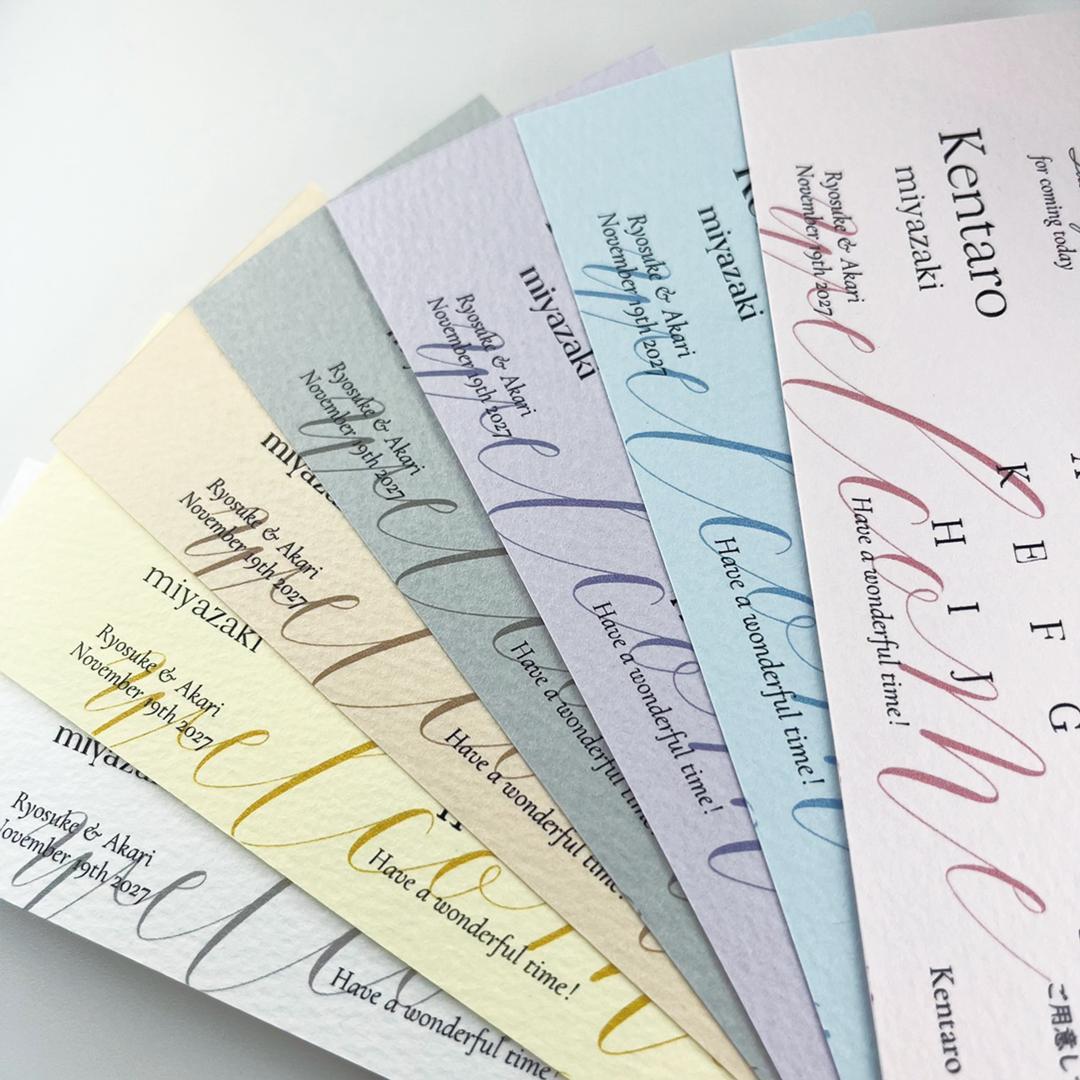 for coming today
Kentaro
miyazaki
Ryosuke & Akari
November 19th 2027
welcome
Have a wonderful time!
K
E F G
H I J
Kentaro
ご用意し
miyazaki
Ryosuke & Akari
November 19th 2027
Have a wonderful time!
miyazaki
Ryosuke & Akari
November 19th 2027
Have a wonderful time!
Ryosuke & Akari
November 19th 2027
Have a wonderful
Ryosuke & Akari
November 19th 2027
Have a wonderful time!
miyazaki
Ryosuke & Akari
November 19th 2027
Have a wonderful time!
Ryosuke & Akari
November 19th 2027
Have a wonderful time!